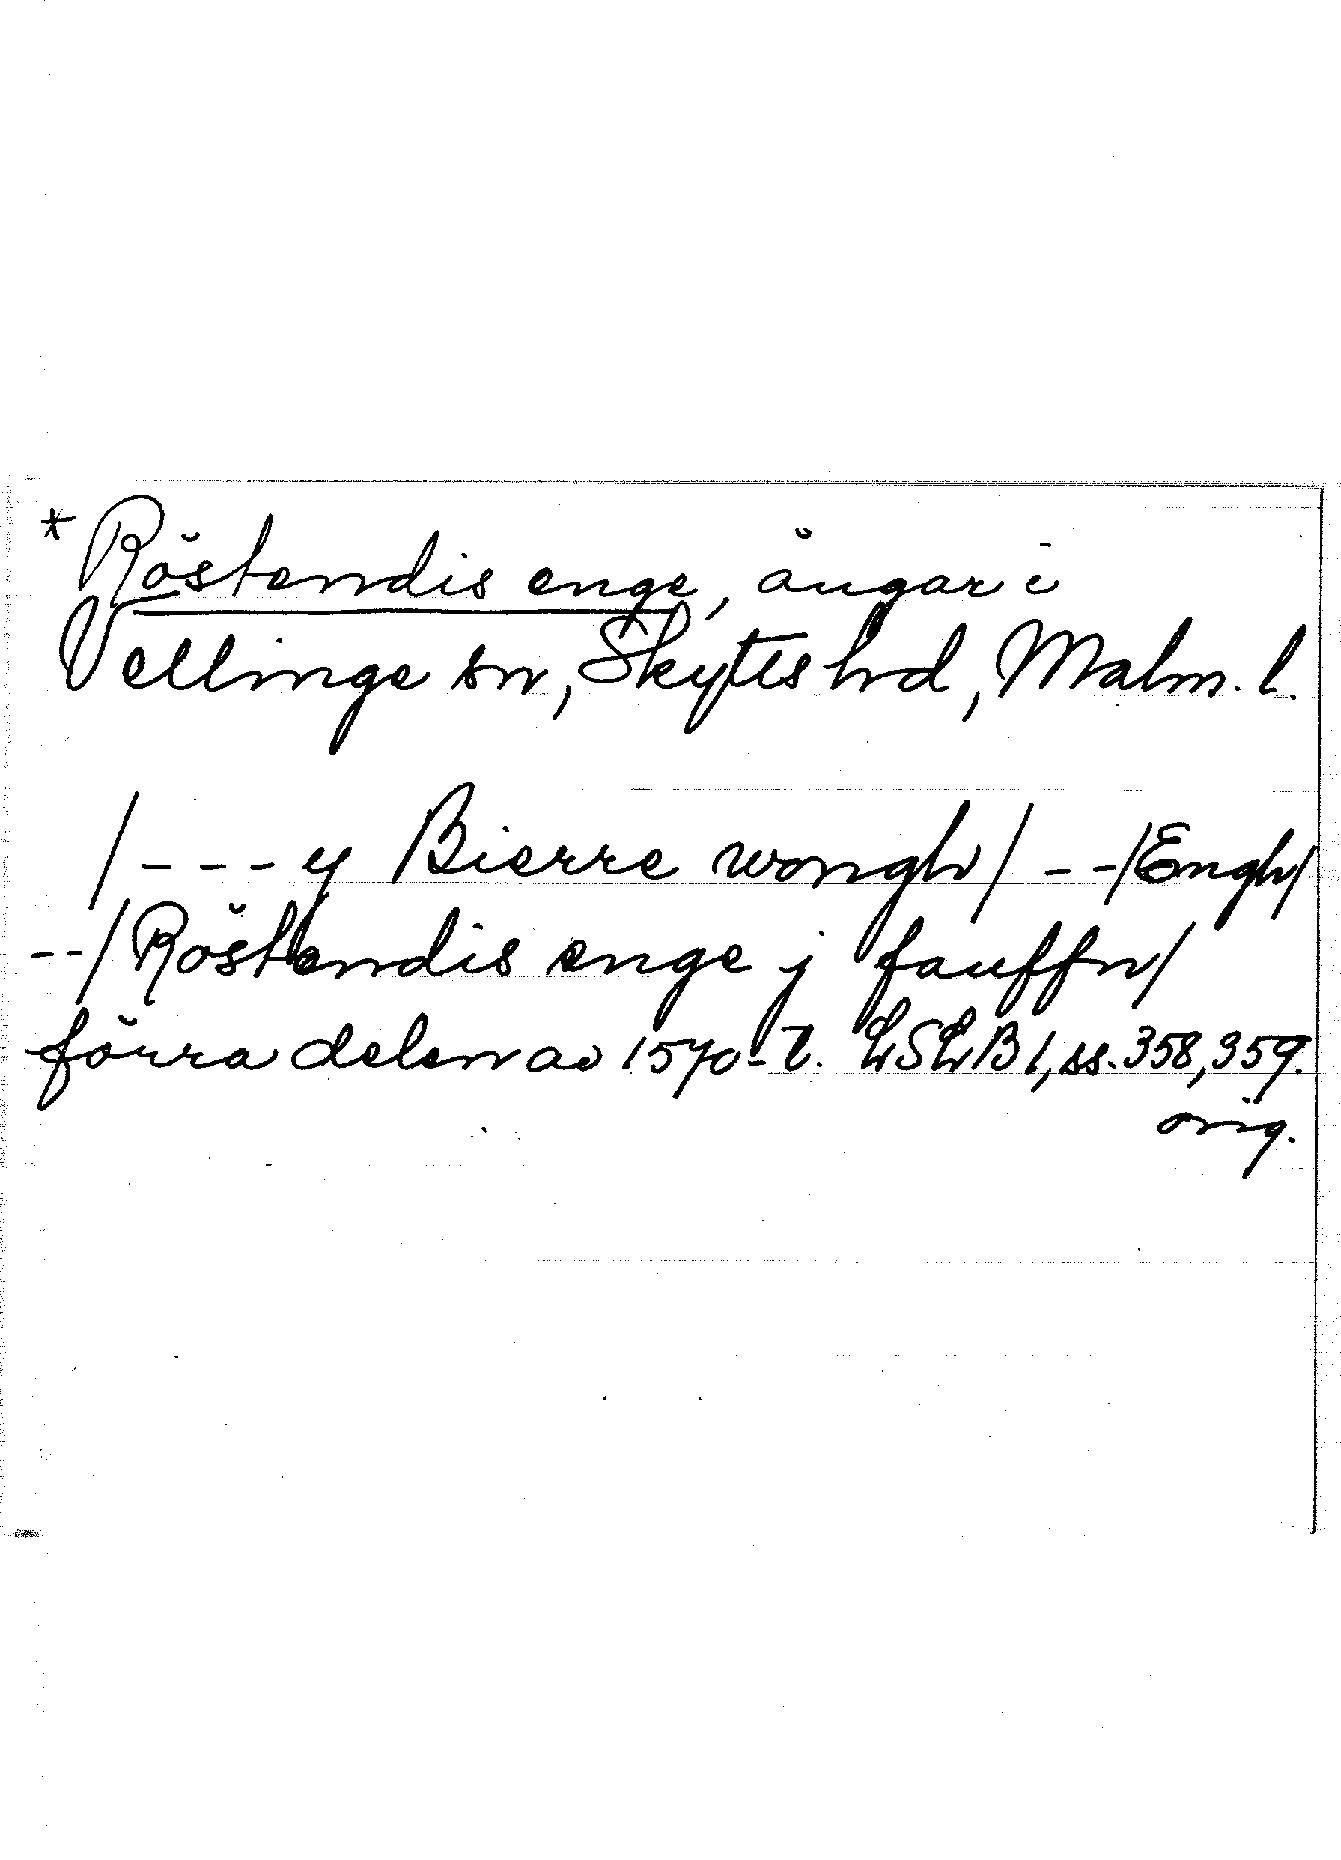 * Röstendis enge, ängar i
Vellinge sn, Skytts hd, Malm. l.
/--- y Bierre wongh/ --/Engh/
--/Röstendis enge j fauffn/
förra delen av 1570-t. LSLB 1, ss. 358, 359.
orig.